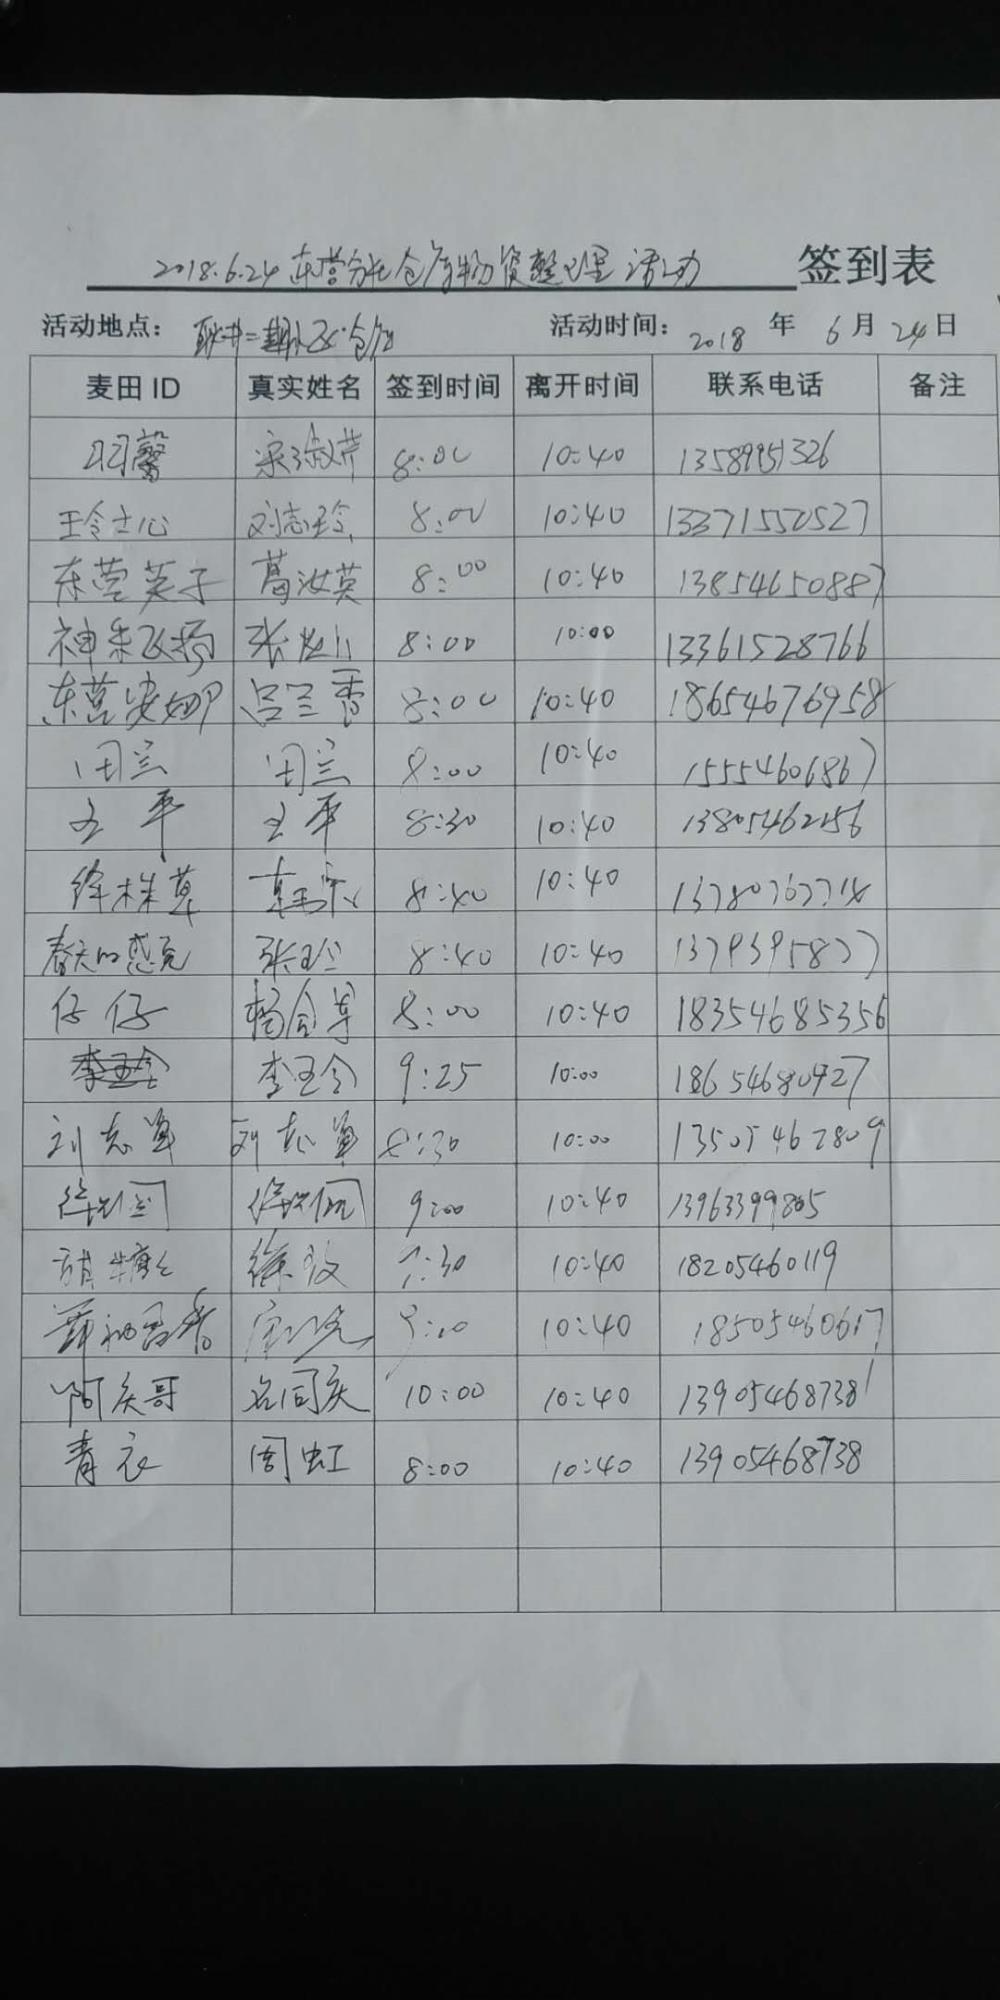 2018.6.24 东营分社仓库物资整理活动 签到表
活动地点： 二期 仓库 活动时间： 2018 年 6 月 24 日
麦田 ID 真实姓名 签到时间 离开时间 联系电话 备注
馨 8:00 10:40 13589951326
玲志心 刘志玲 8:00 10:40 13371550527
东营英子 葛汝英 8:00 10:40 13854650887
神采飞扬 张 8:00 10:00 13361528766
东营安妮 吕兰香 8:00 10:40 18654676958
田兰 田兰 8:00 10:40 15554606867
王平 王平 8:30 10:40 13805462156
株草 8:40 10:40
春天的 张玲 8:40 10:40 13793958277
仔仔 杨会尊 8:00 10:40 18354685356
李玉令 李玉令 9:25 10:00 18654680927
刘志军 刘志军 8:30 10:00 13505462809
9:00 10:40 13963399805
徐 :30 10:40 18205460119
9:00 10:40 18505460617
阿庆哥 吕同庆 10:00 10:40 13905468738
青衣 周虹 8:00 10:40 13905468738